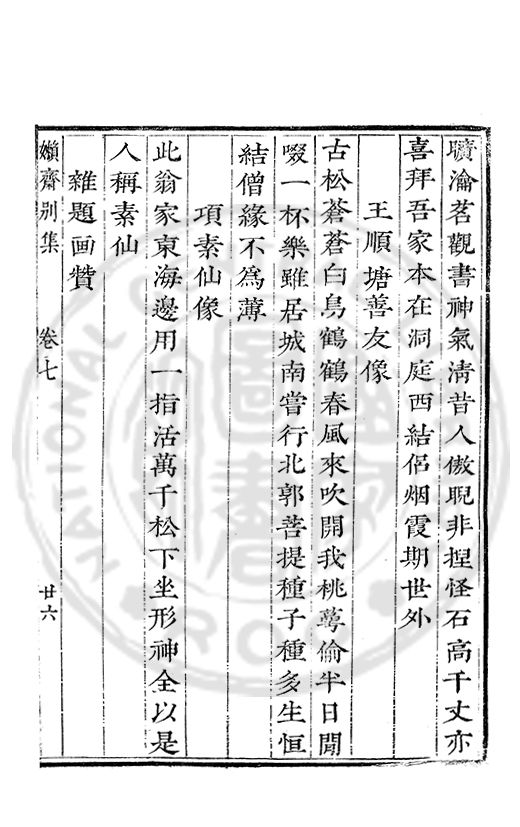 曠瀹茗觀書神氣淸昔人傲睨非捏怪石高千丈亦
喜拜吾家本在洞庭西結侶烟霞期世外
王順塘善友像
古松蒼蒼白鳥鶴鶴春風來吹開我桃萼偷半日閒
啜一杯樂雖居城南嘗行北郭菩提種子種多生恒
結僧緣不爲薄
項素仙像
此翁家東海邊用一指活萬千松下坐形神全以是
人稱素仙
雜題画贊
嬾齋別集
卷七
廿六